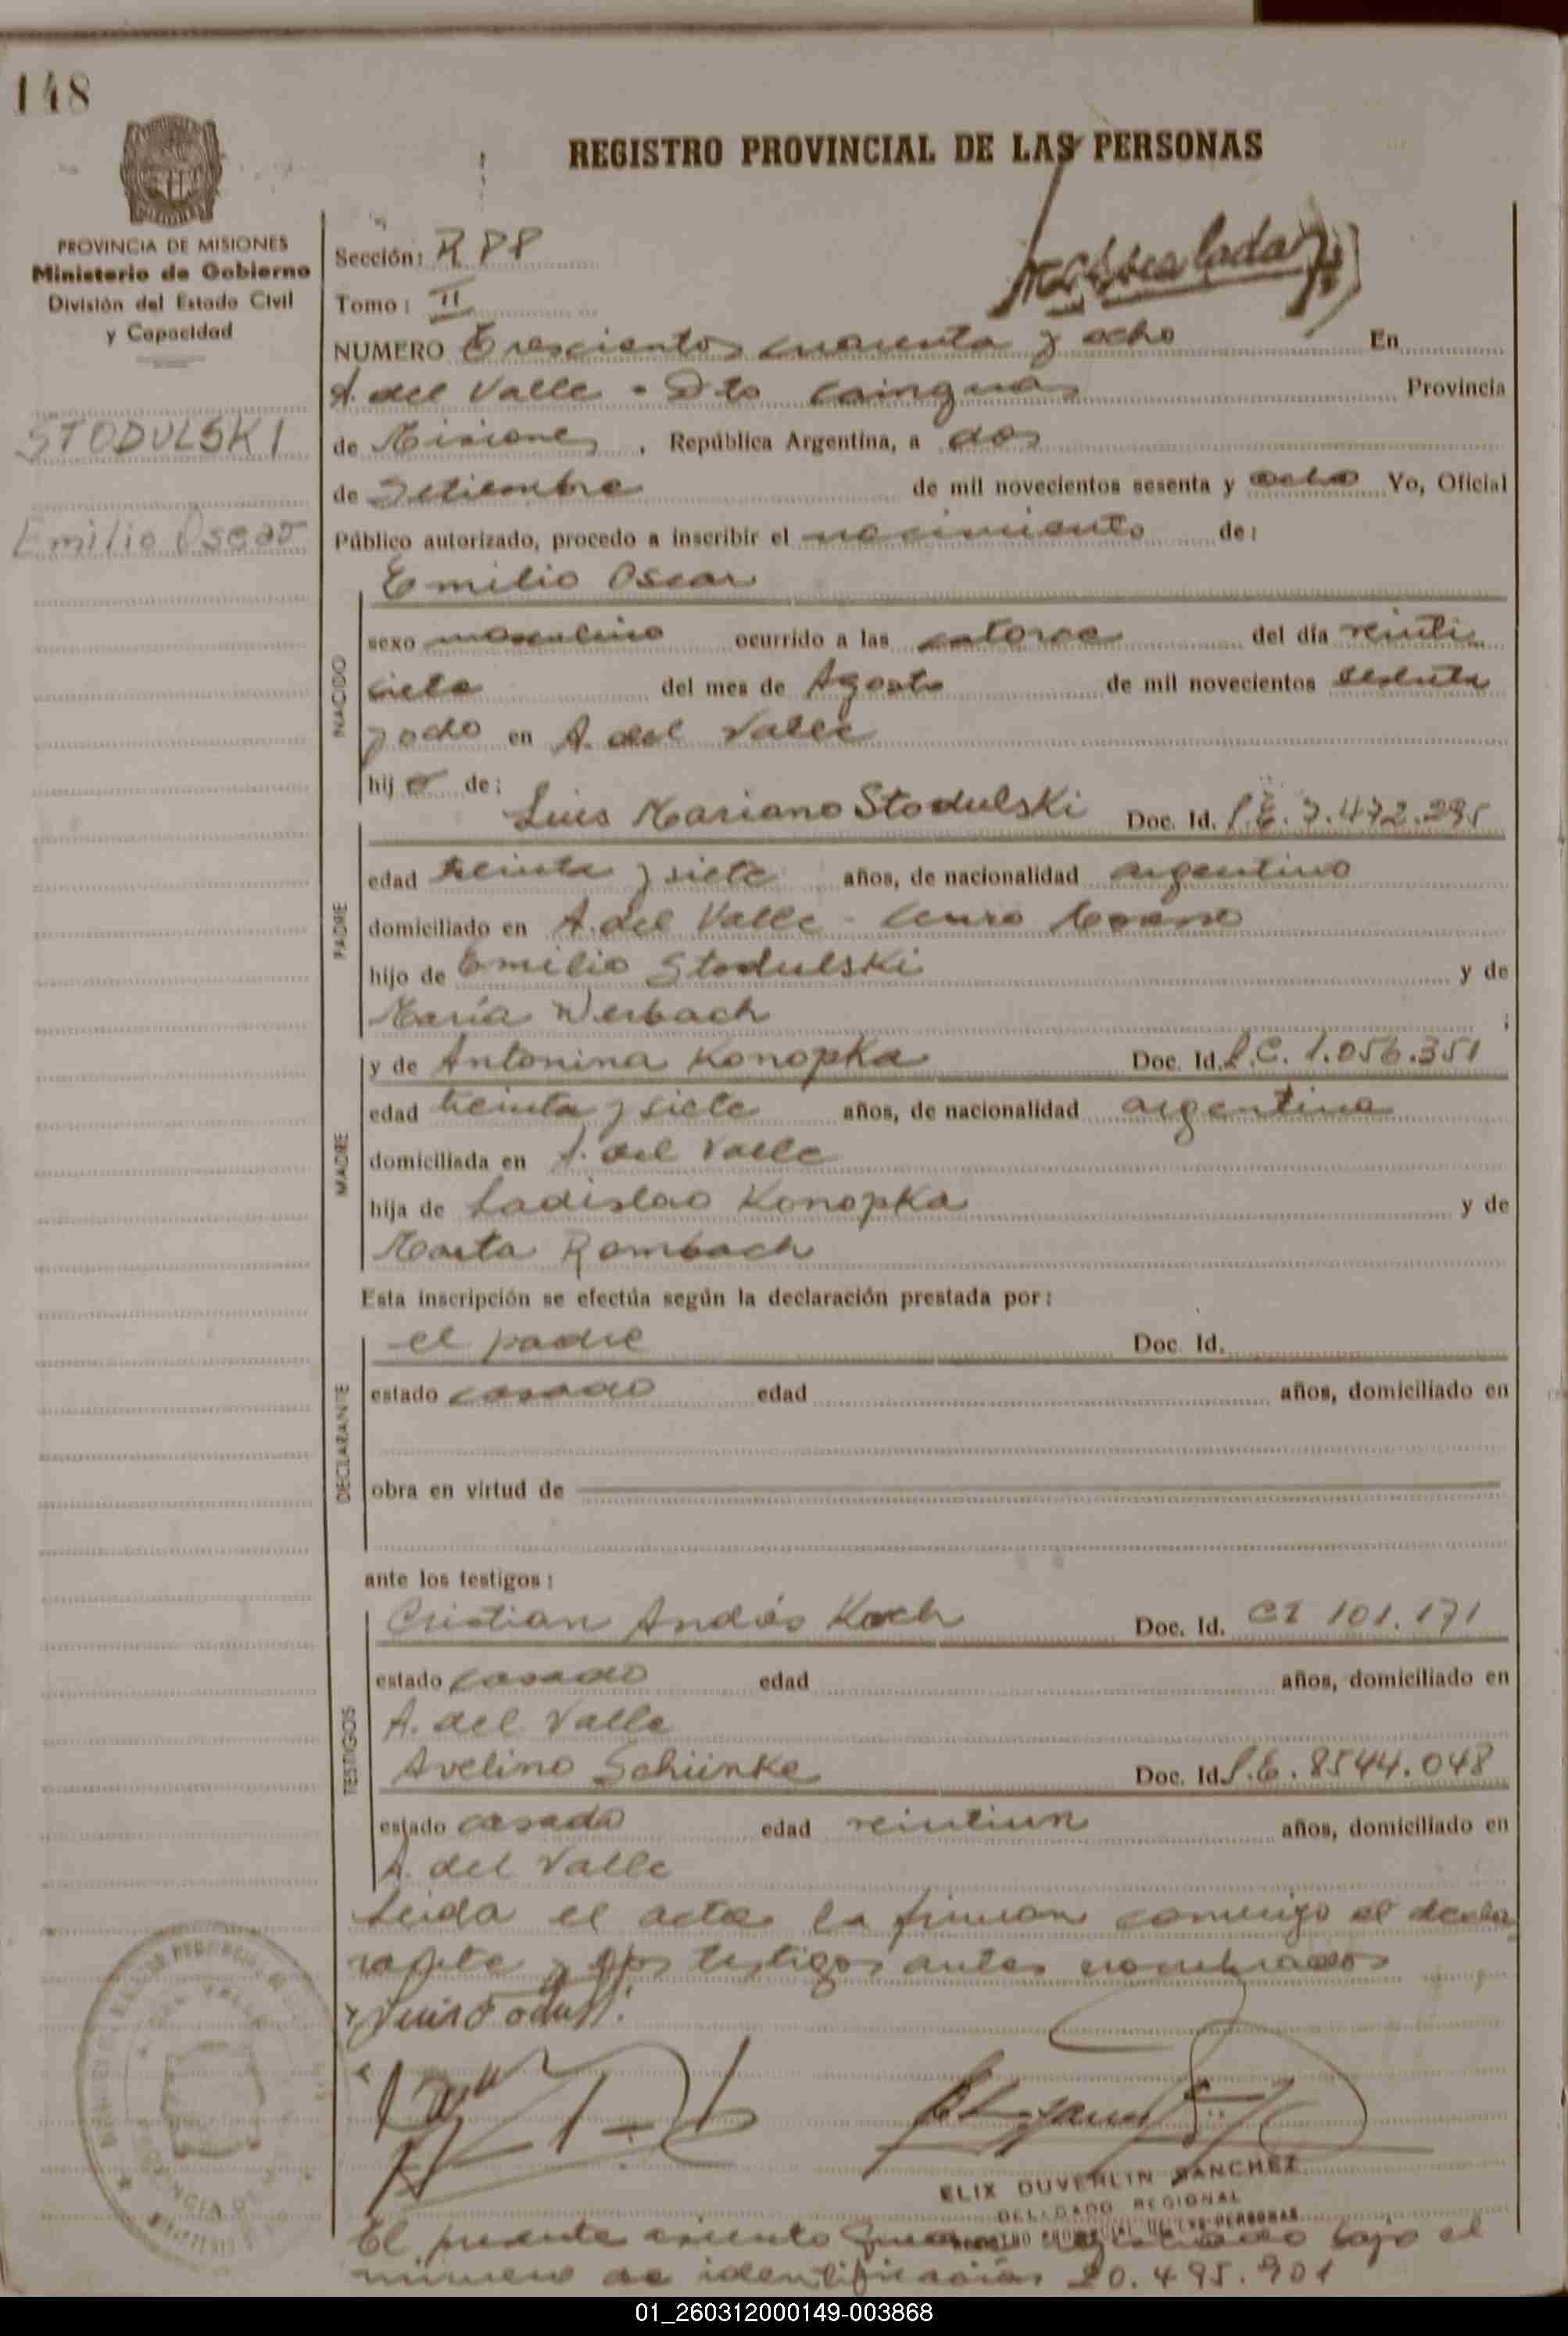 148
REGISTRO PROVINCIAL DE LAS PERSONAS
PROVINCIA DE MISIONES
Ministerio de Gobierno
División del Estado Civil
y Capacidad
STODULSKI
Emilio Oscar
Sección:
Tomo: II
NUMERO Trescientos cuarenta y ocho En
A. del Valle - Dto Cainguas Provincia
de Misiones, República Argentina, a dos
de Setiembre de mil novecientos sesenta y ocho Yo, Oficial
Público autorizado, procedo a inscribir el nacimiento de:
Emilio Oscar
NACIDO
sexo masculino ocurrido a las catorce del día veinti
siete del mes de Agosto de mil novecientos sesenta
y ocho en A. del Valle
hijo de:
PADRE
Luis Mariano Stodulski Doc. Id. L.E. 7.472.295
edad treinta y siete años, de nacionalidad argentino
domiciliado en A. del Valle -
hijo de Emilio Stodulski y de
María Werbach ;
MADRE
y de Antonina Konopka Doc. Id. L.C. 1.056.351
edad treinta y siete años, de nacionalidad argentina
domiciliada en A. del Valle
hija de Ladislao Konopka y de
Marta Rombach
Esta inscripción se efectúa según la declaración prestada por:
DECLARANTE
el padre Doc. Id.
estado casado edad años, domiciliado en
obra en virtud de
ante los testigos:
TESTIGOS
Cristian Andrés Koch Doc. Id. CI 101.171
estado casado edad años, domiciliado en
A. del Valle
Avelino Schünke Doc. Id. L.E. 8544.048
estado casado edad veintiun años, domiciliado en
A. del Valle
Leida el acta la firman conmigo el decla
rante y los testigos antes nombrados
ELIX DUVERLIN SANCHEZ
DELEGADO REGIONAL
REGISTRO PROVINCIAL DE LAS PERSONAS
El presente asiento registrado bajo el
numero de identificación 20.495.901
01_260312000149-003868